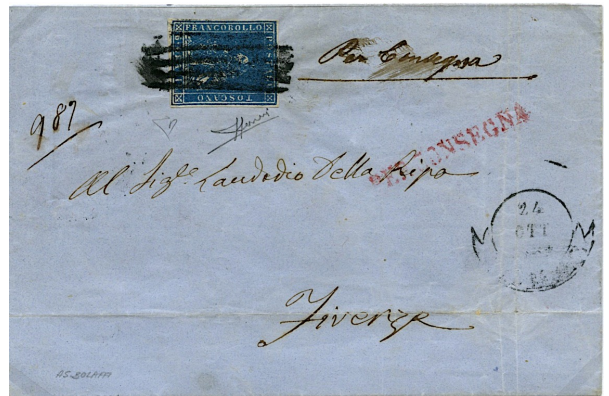 FRANCOBOLLO
TOSCANO
Per Consegna
987
PER CONSEGNA
Al Sigre Laudadio Della Ripa
24
OTT
Firenze
AS. BOLAFFI